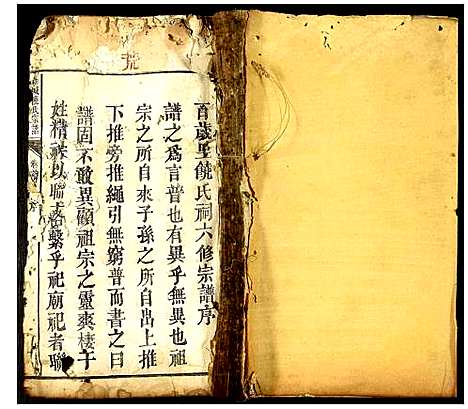 荒
百歲里饒氏祠六修宗譜序
譜之爲言普也有異乎無異也祖
宗之所自來子孫之所自出上推
下推旁推繩引無窮普而書之曰
譜固不敢異顧祖宗之靈爽棲于
姓精以聯络繫乎祀廟祀者聯
氏宗譜